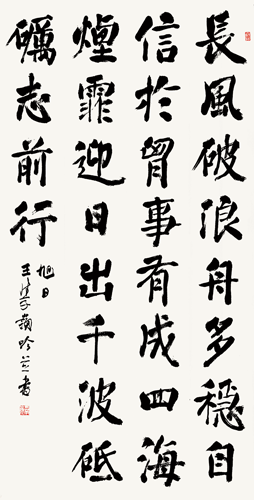 長風破浪舟多穩自
信於胷事有成四海
煙霏迎日出千波砥
礪志前行
旭日
王學嶺吟並書